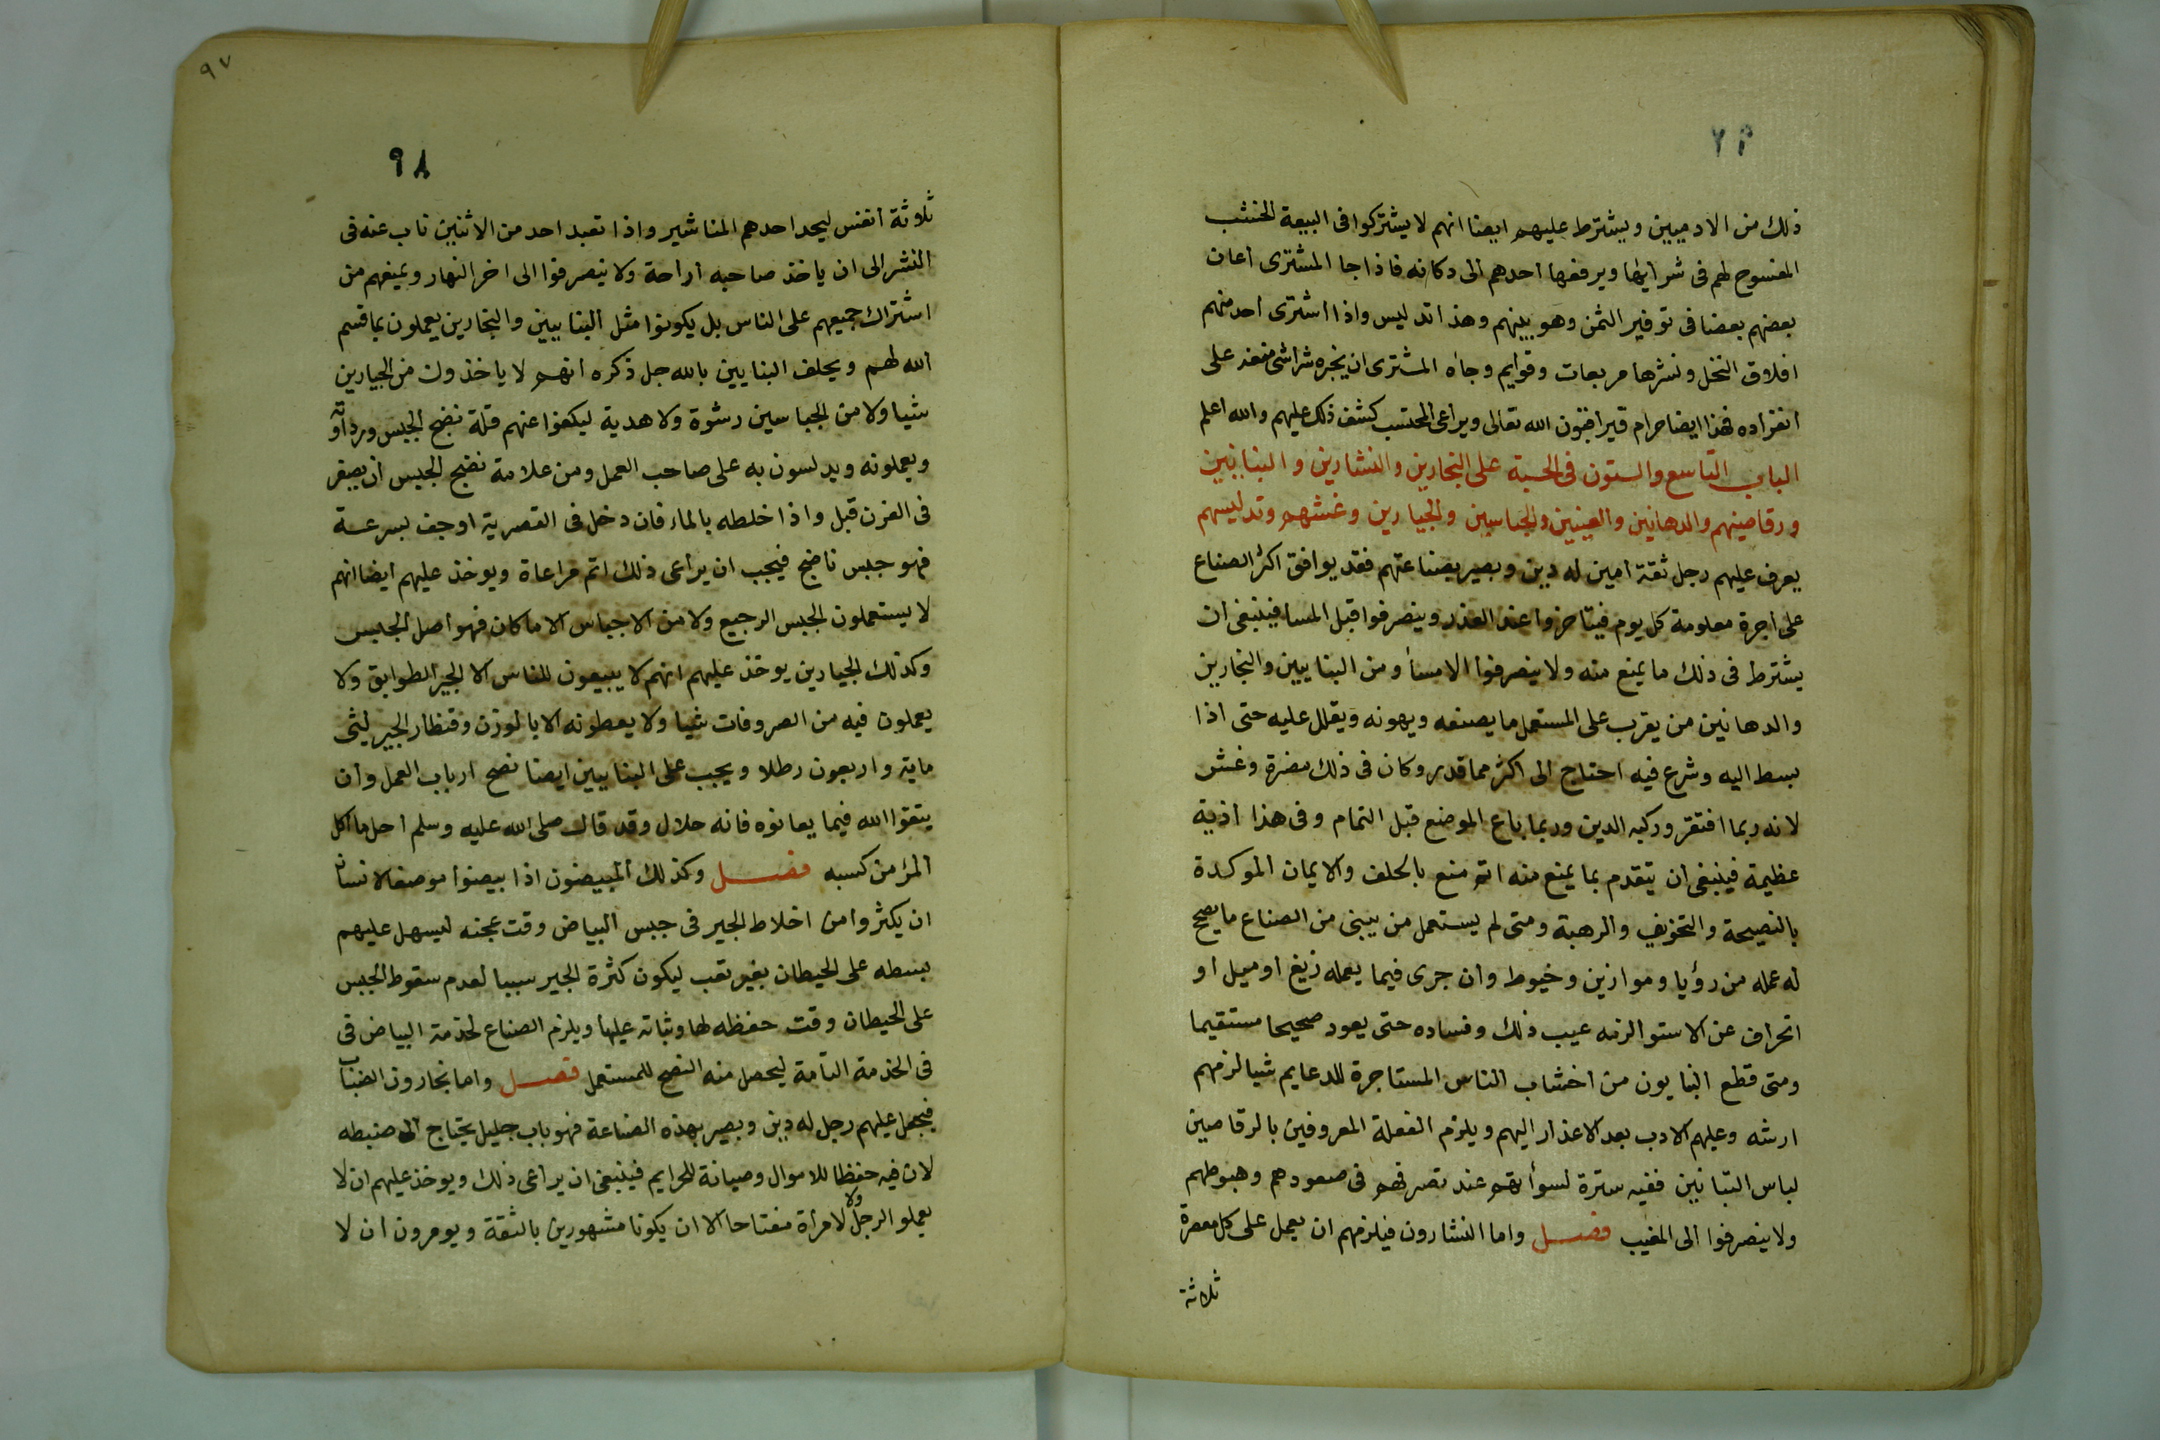 ذلك من الادميين ويشترط عليهم ايضا انهم لا يشتركوا فى البيعة الخشب
المفسوح لهم فى شرايها ويرفعها احدهم الى دكانه فاذا جا المشترى اعان
بعضهم بعضا فى توفير الثمن وهو بينهم وهذا تدليس واذا اشترى احد منهم
افلاق النخل ونشرها مربعات وقوايم وجاه المشترى ان يخبره شراشى منفرد على
انفراده فهذا ايضا حرام فيراقبون الله تعالى ويراعى المحتسب كشف ذلك عليهم والله اعلم
الباب التاسع والستون فى الحسبة على النجارين والنشارين والبنايين
ورقاصينهم والدهانين والجباسين والجيارين وغشهم وتدليسهم
يعرف عليهم رجل ثقة امين له دين وبصير بصناعتهم فقد يوافق اكثر الصناع
على اجرة معلومة كل يوم فيتاخروا عند الغدر وينصرفوا قبل المسا فينبغى ان
يشترط فى ذلك ما يمنع منه ولا ينصرفوا الا مسأ ومن البنايين والنجارين
والدهانين من يقرب على المستعمل ما يصنعه ويهونه ويقلل عليه حتى اذا
بسط اليه وشرع فيه احتاج الى اكثر مما قدر وكان فى ذلك مضرة وغش
لانه ربما افتقر وركبه الدين وربما باع الموضع قبل التمام وفى هذا اذية
عظيمة فينبغى ان يتقدم بما يمنع منه اتم منع بالحلف والايمان الموكدة
بالنصيحة والتخويف والرهبة ومتى لم يستعمل من يبنى من الصناع ما يصح
له عمله من رؤيا وموازين وخيوط وان جرى فيما يعمله زيغ او ميل او
انحراف عن الاستوا الزمه عيب ذلك وفساده حتى يعود صحيحا مستقيما
ومتى قطع البنايون من اخشاب الناس المستاجرة للدعايم شيا لزمهم
ارشه وعليهم الادب بعد الاعذار اليهم ويلزم الفعلة المعروفين بالرقاصين
لباس التبانين ففيه سترة لسوأتهم عند تصرفهم فى صعودهم وهبوطهم
ولا ينصرفوا الى المغيب فصل واما النشارون فيلزمهم ان يعمل على كل معصرة
ثلاثة
٩٧
٩٨
ثلاثة انفس ليحد احدهم المناشير واذا تعبد احد من الاثنين ناب عنه فى
النشر الى ان ياخذ صاحبه اراحة ولا ينصرفوا الى اخر النهار ويمنعهم من
اشتراك جميعهم على الناس بل يكونوا مثل البنايين والنجارين يعملون بما قسم
الله لهم ويحلف البنايين بالله جل ذكره انهم لا ياخذون من الجيارين
شيا ولا من الجباسين رشوة ولا هدية ليكفوا عنهم قلة نضج الجبس ورداوته
ويعملونه ويدلسون به على صاحب العمل ومن علامة نضج الجبس ان يصفر
فى الفرن قبل واذا خلطه بالماء فان دخل فى القصرية اوجف بسرعة
فهو جبس ناضج فيجب ان يراعى ذلك اتم مراعاة ويوخذ عليهم ايضا انهم
لا يستعملون الجبس الرجيع ولا من الاجباس الا ما كان فهو اصل الجبس
وكذلك الجيارين يوخذ عليهم انهم لا يبيعون للناس الا الجير الطوابق ولا
يعملون فيه من الصروفات شيا ولا يعطونه الا بالوزن وقنطار الجير ليثى
ماية واربعون رطلا ويجب على البنايين ايضا نصح ارباب العمل وان
يتقوا الله فيما يعانوه فانه حلال وقد قال صلى الله عليه وسلم احل ما اكل
المرء من كسبه فصل وكذلك المبيضون اذا بيضوا موضعا لانسان
ان يكثروا من اخلاط الجير فى جبس البياض وقت عجنه ليسهل عليهم
بسطه على الحيطان بغير تعب ليكون كثرة الجير سببا لعدم سقوط الجبس
على الحيطان وقت حفظه لها وثباته عليها ويلزم الصناع لخدمة البياض فى
فى الخدمة التامة ليحصل منه النصح للمستعمل فصل واما نجارون الضباب
فيجعل عليهم رجل له دين وبصير بهذه الصناعة فهو باب جليل يحتاج الى ضبطه
لان فيه حفظا للاموال وصيانة للحرايم فينبغى ان يراعى ذلك ويوخذ عليهم ان لا
يعملو الرجل ولا لامرأة مفتاحا الا ان يكونا مشهورين بالثقة ويومرون ان لا